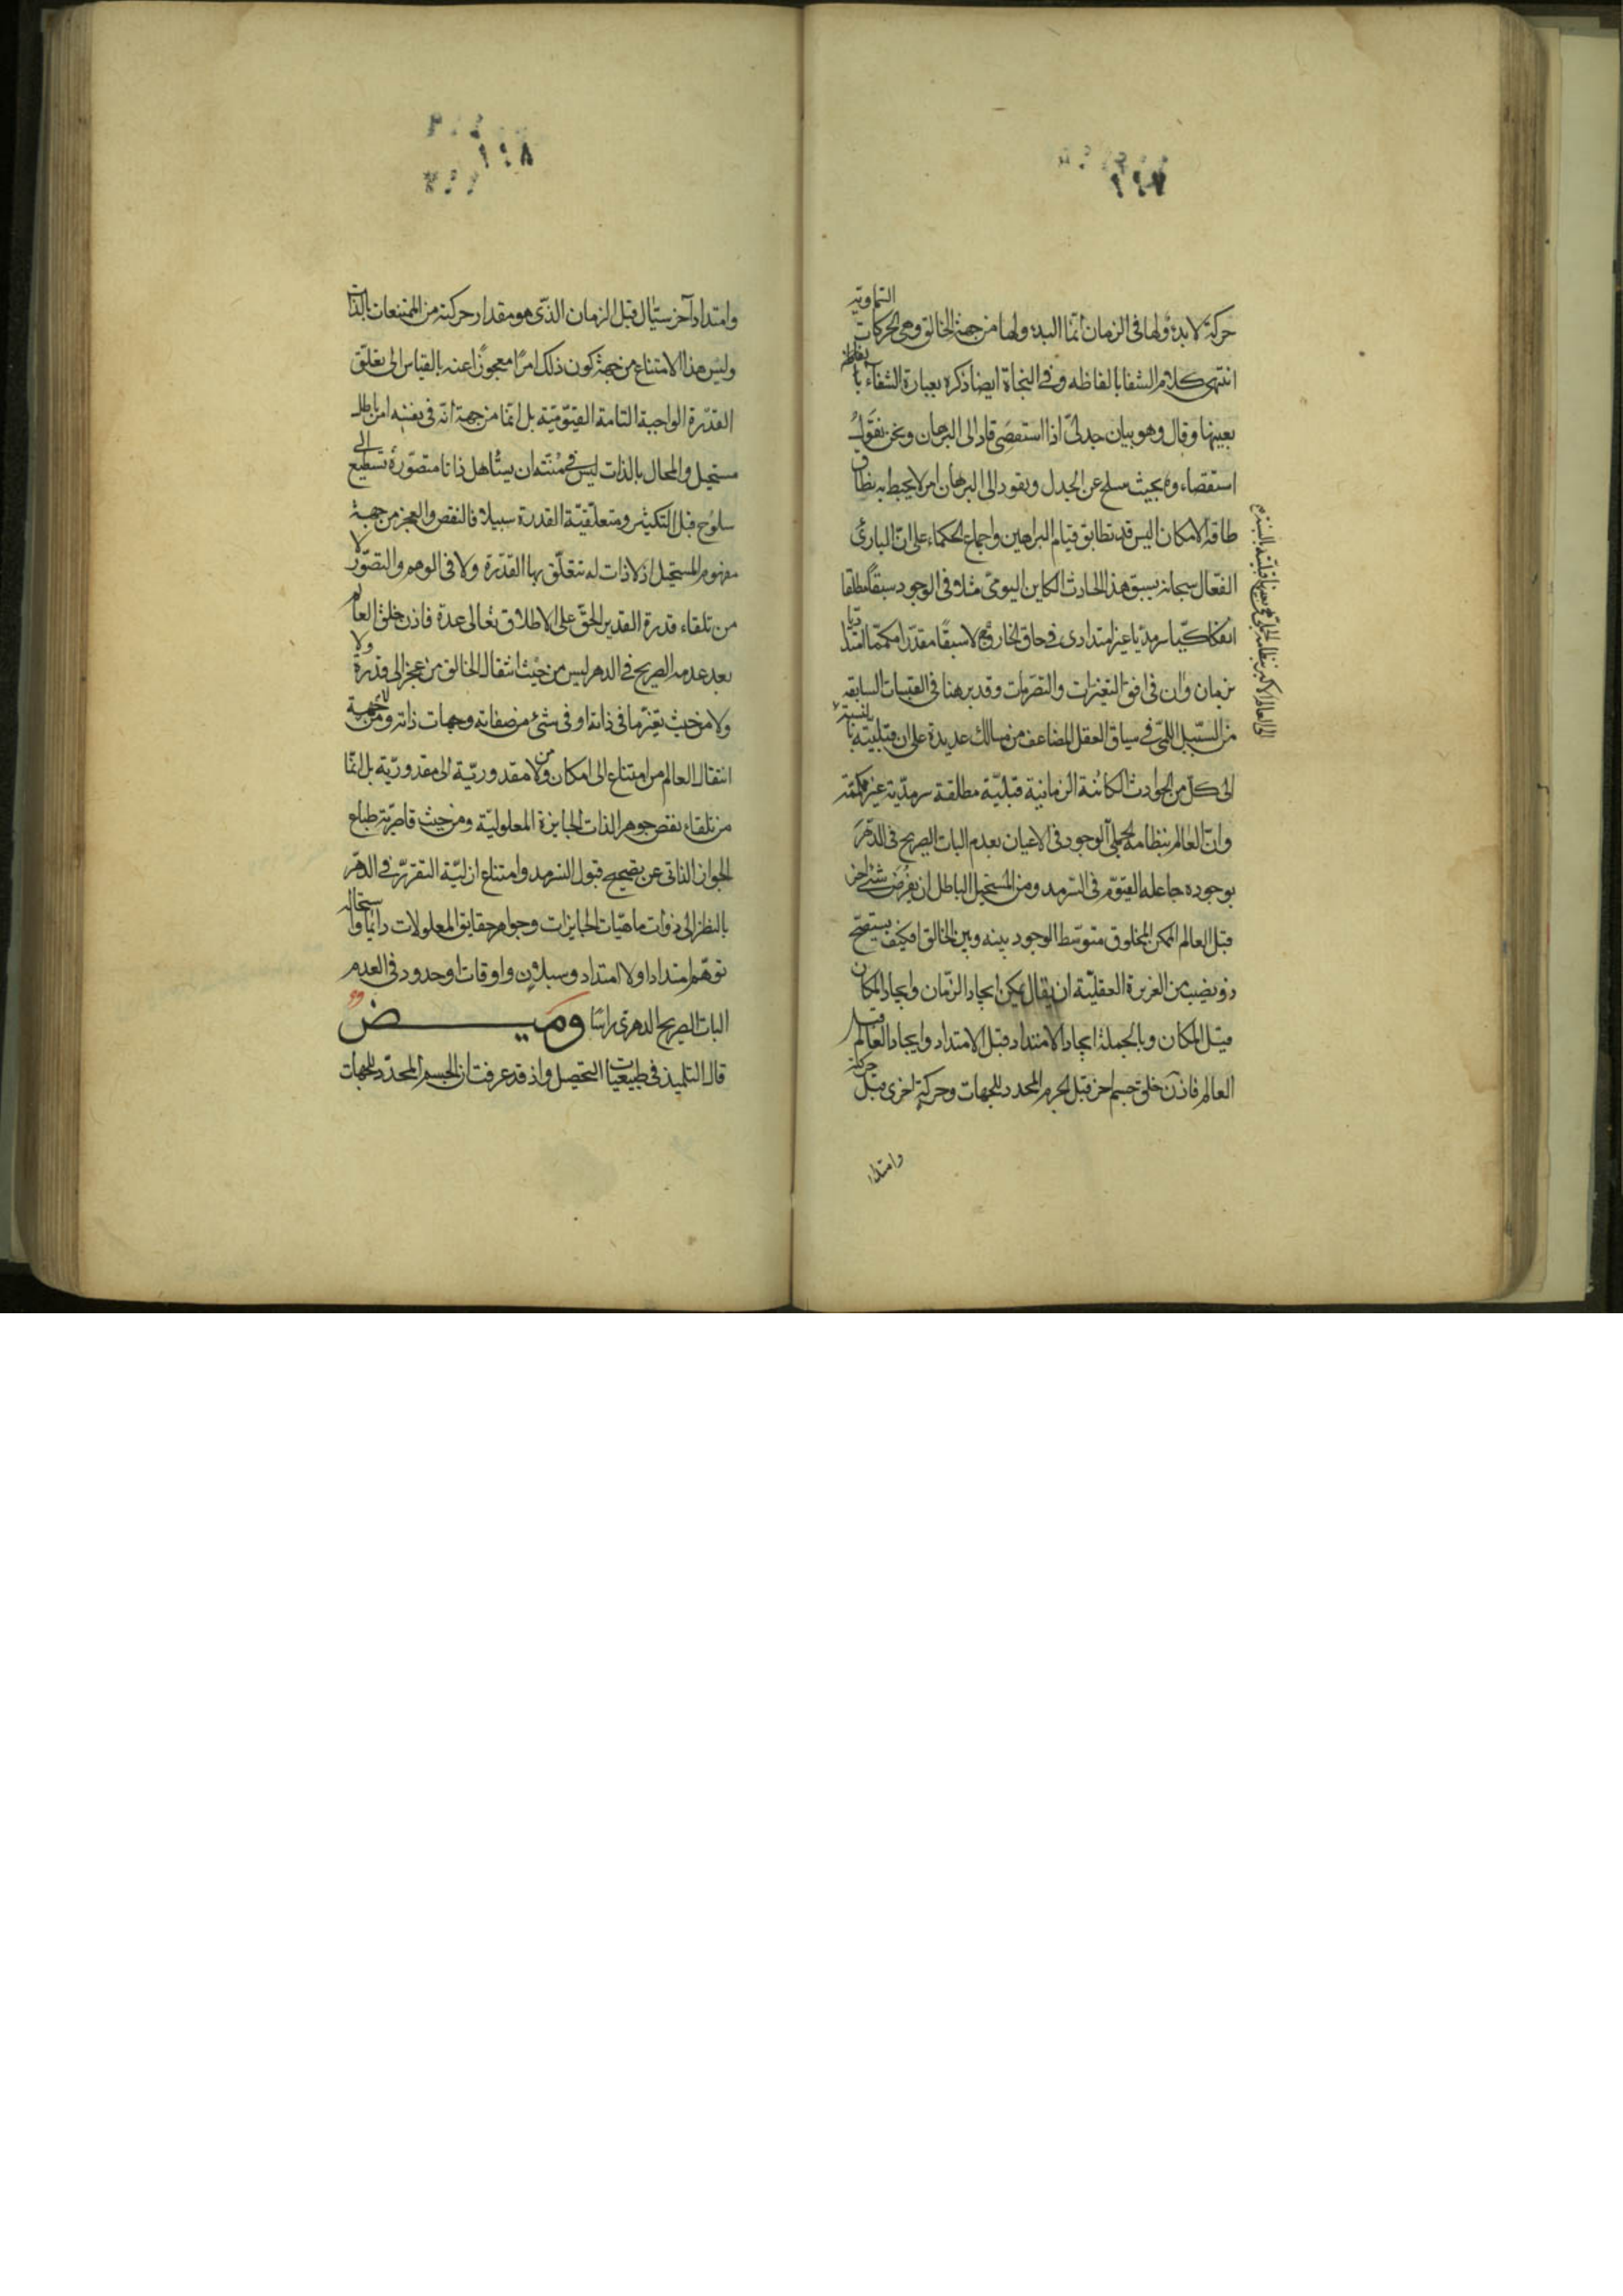 حركة لا بدء لها فى الزمان انّما البدء لها من جهة الخالق وهى الحركات السماوية
انتهى كلام الشفا بالفاظه وفى النجاة ايضا ذكره بعبارة الشفاء بالفاظه
بعينها وقال وهو بيان جدلىّ اذا استقصى قاد الى البرهان ونحن نقول
استقصاء وه بحيث ينسلخ عن الجدل ويقود الى البرهان امر لا يحيط به نطاق
طاقة الامكان اليس قد تطابق قيام البراهين واجماع الحكماء على انّ البارئ
الفعّال سبحانه يسبق هذا الحادث الكاين اليومىّ مثلا فى الوجود سبقًا مطلقا
انفكاكيّا سرمديّا غير امتدادى فى حاق الخارج لا سبقًا مقدّرا مكمّما امتداديّا
بزمان وآن فى افق التغيرات والتصرمات وقد برهنا فى القبسات السابقه
من السبيل اللمّى فى سياق العقل المضاعف من مسالك عديدة على ان قبليّته بالنسبة
الى كلّ من الحوادث الكائنة الزمانية قبليّة مطلقة سرمديّة غير مكممة
وانّ العالم بنظامه الجملى آلوجود فى الاعيان بعدم البات الصريح فى الدهر
بوجوده جاعله القيّوم فى السرمد ومن المستحيل الباطل ان يفرض شئ آخر
قبل العالم الممكن المخلوق متوسّط الوجود بينه وبين الخالق افكيف يستصحّ
ذو نصيب من الغريزة العقليّة ان يقال يمكن ايجاد الزّمان وايجاد المكان
قبل المكان وبالجملة ايجاد الامتداد قبل الامتداد وايجاد العالم قبل
العالم فاذن خلق جسم آخر قبل الجرم المحدد للجهات وحركة اخرى قبل حركته
وامتداد
وامتداد آخر سيّال قبل الزمان الذى هو مقدار حركته من الممتنعات بالذات
وليس هذا الامتناع من جهة كون ذلك امرًا معجوزًا عنه بالقياس الى تعلّق
القدرة الواجبة التامة القيّوميّة بل انّما من جهة انّه فى نفسه امر باطل
مستحيل والمحال بالذات ليس فى منّته ان يستاهل ذاتا متصوّرة تستطيع الى
سلوح قبل التكثير ومتعلّقيّة القدرة سبيلا فالنقص والعجز من جهة
مفهوم المستحيل اذ لا ذات له تتعلّق بها القدرة ولا فى الوهم والتصوّر لا
من تلقاء قدرة القدير الحقّ على الاطلاق تعالى عدة فاذن خلق العالم
بعد عدمه الصريح فى الدهر ليس من حيث انتقال الخالق من عجز الى قدرة ولا
ولا من حيث تغيّر ما فى ذاته او فى شئ من صفاته وجهات ذاته ولا من جهة
انتقال العالم من امتناع الى امكان ومن لا مقدوريّة الى مقدوريّة بل انّما
من تلقاء نقص جوهر الذات الجايزة المعلوليّة ومن حيث قاصريّة طباع
الجواز الذاتى عن تصحيح قبول السرمد وامتناع ازليّة التقرّر فى الدهر
بالنظر الى ذوات ماهيّات الجايزات وجواهر حقايق المعلولات دائما واستحالة
توهّم امتداد او لا امتداد وسيلان واوقات او حدود فى العدم
البات الصريح الدهرى راسًا وميض
قال التلميذ فى طبيعيات التحصيل واذ قد عرفت ان الجسم المحدّد للجهات